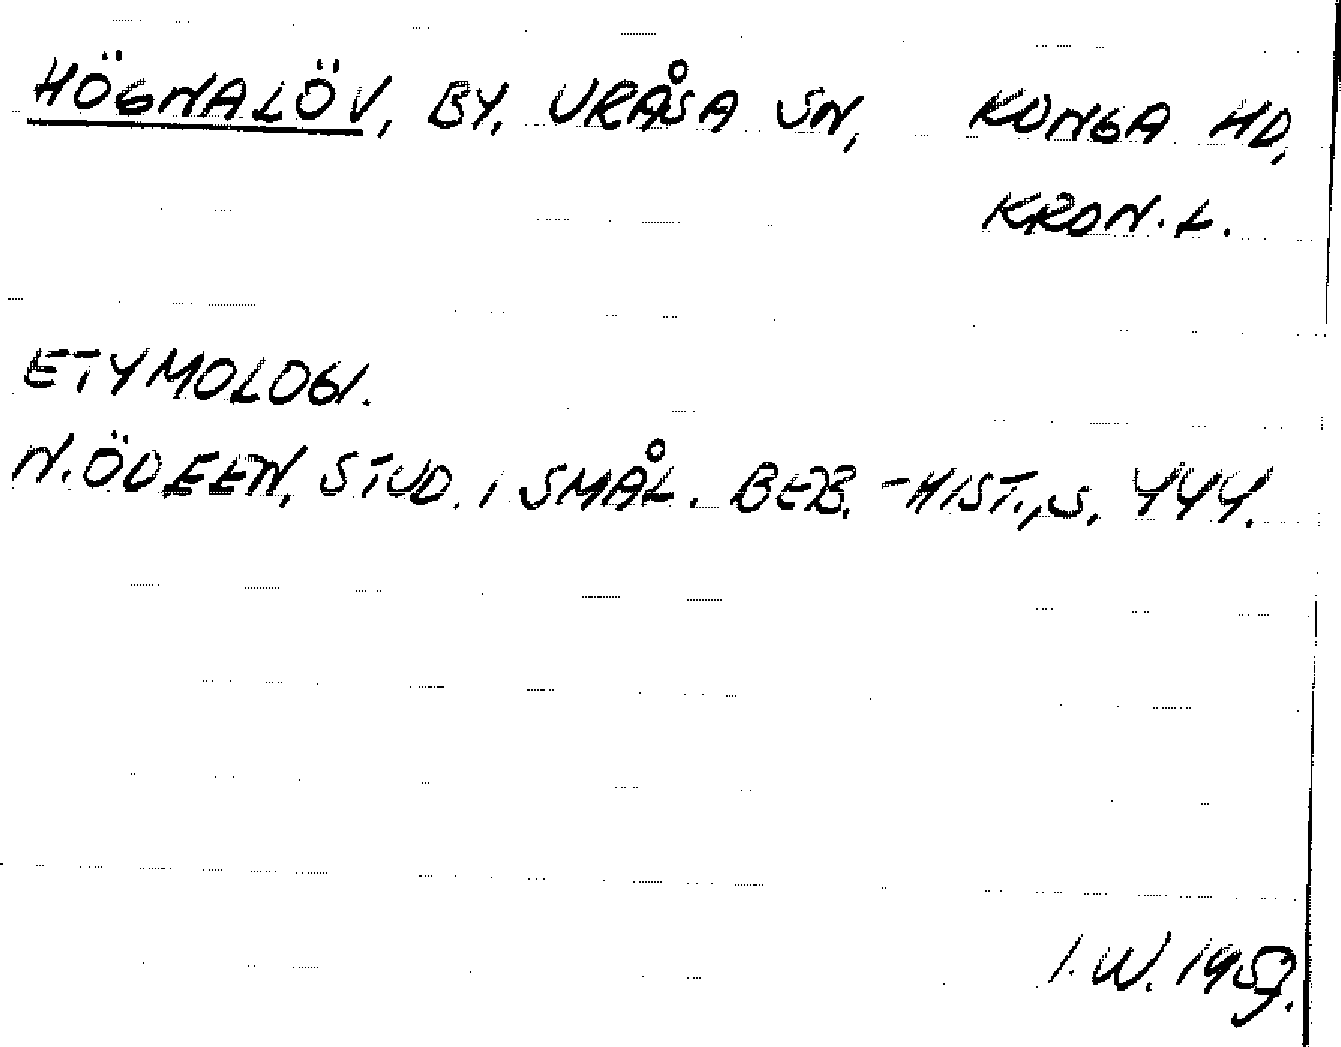 HÖGNALÖV, BY, URÅSA SN, KONGA HD,
KRON. L.
ETYMOLOGI.
N. ÖDEEN, STUD. I SMÅL. BEB. -HIST., S. 444.
I. W.